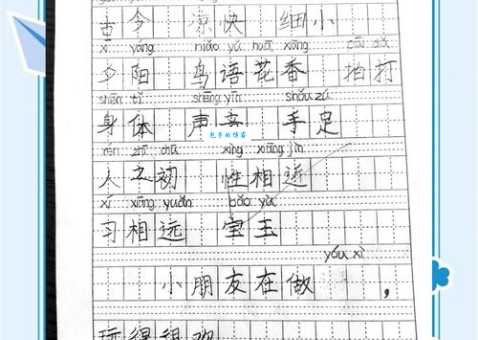 古今 凉快 细小
xī yáng niǎo yǔ huā xiāng pāi dǎ
夕阳 鸟语花香 拍打
shēn tǐ shēng yīn shǒu zú
身体 声音 手足
rén zhī chū xìng xiāng jìn
人之初 性相近
xí xiāng yuǎn bǎo yù
习相远 宝玉
yóu xì
小朋友在做 ，
玩得很欢